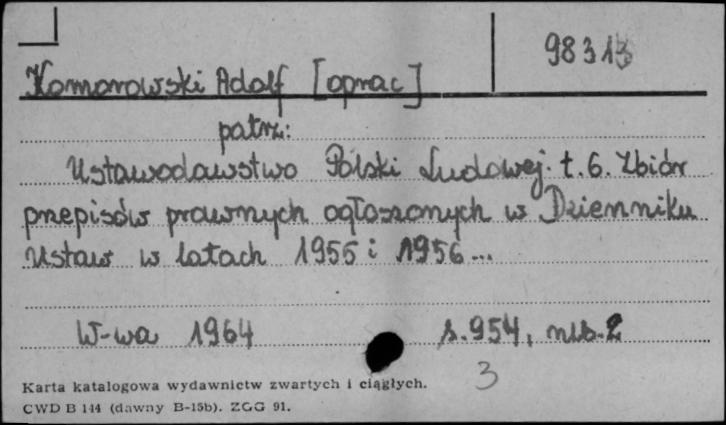 98313
Komorowski Adolf [oprac]
patrz:
Ustawodawstwo Polski Ludowej. t. 6. Zbiór
przepisów prawnych ogłoszonych w Dzienniku
Ustaw w latach 1955 i 1956...
W-wa 1964 s. 954, nlb. 2
3
Karta katalogowa wydawnictw zwartych i ciągłych.
CWD B 144 (dawny B-15b). ZGG 91.